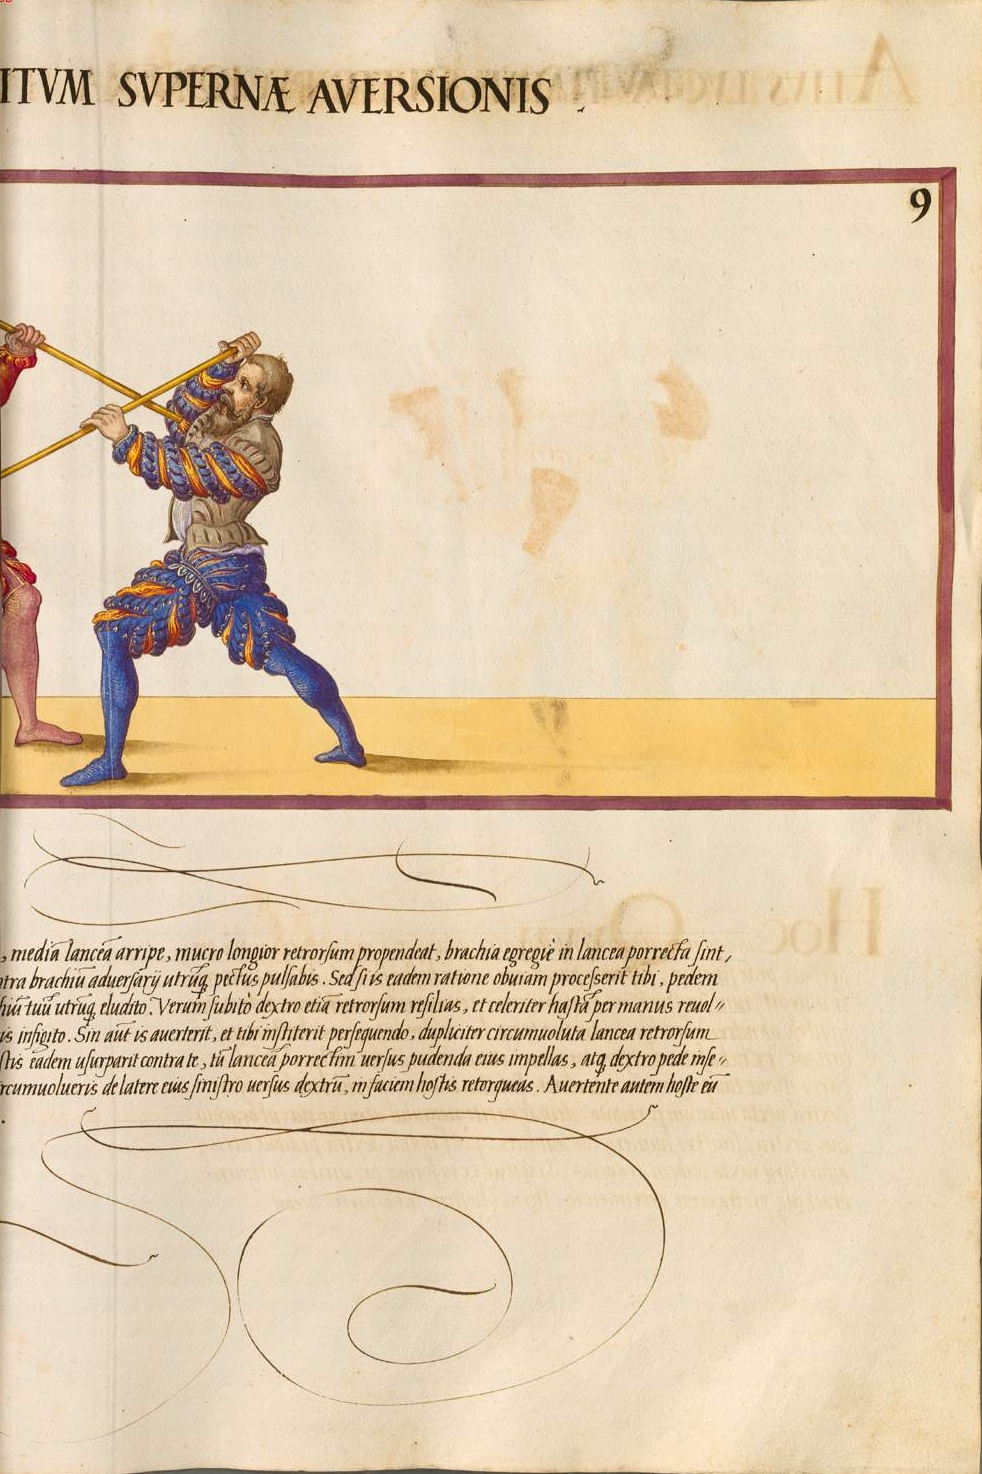 ITVM SVPERNÆ AVERSIONIS .
9
, media lanceā arripe, mucro longior retrorsum propendeat, brachia egregiè in lancea porrecta sint,
tra brachiū aduersarij utrūq, pectus pulsabis. Sed si is eadem ratione obuiam processerit tibi, pedem
tuū utrūq, eludito. Verum subitò dextro etiā retrorsum resilias, et celeriter hastā per manus reuol〃
is infigito. Sin aūt is auerterit, et tibi institerit persequendo, dupliciter circumuoluta lancea retrorsum
stis eadem usurparit contra te, tū lanceā porrectim uersus pudenda eius impellas, atq, dextro pede inse〃
rcumuolueris de latere eius sinistro uersus dextrū, in faciem hostis retorqueas. Auertente autem hoste eū
.